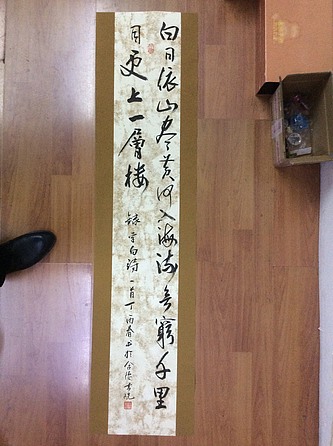 白日依山尽黄河入海流欲窮千里
目更上一層楼 録李白詩一首丁酉春书於